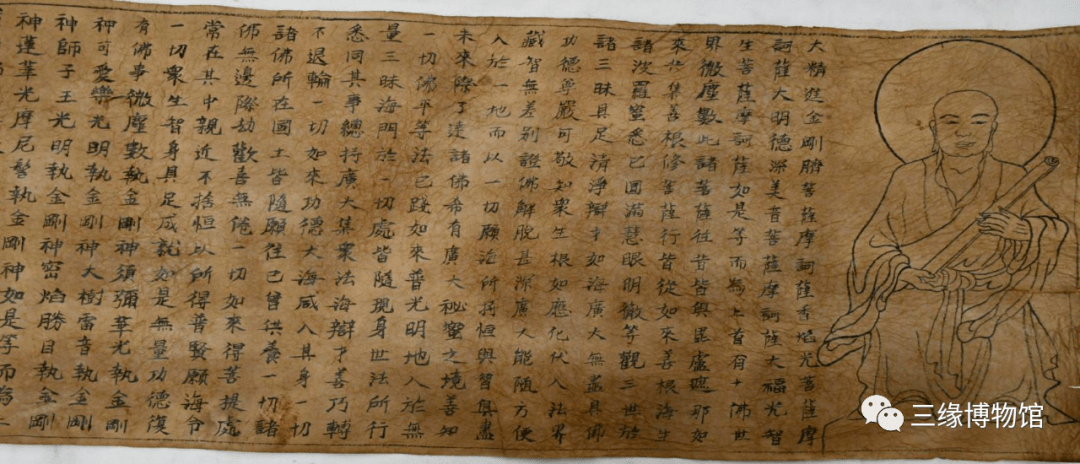 大精進金剛臍菩薩摩訶薩香焰光菩薩摩
訶薩大明德深美音菩薩摩訶薩大福光智
生菩薩摩訶薩如是等而為上首有十佛世
界微塵數此諸菩薩往昔皆與毘盧遮那如
來共集善根修菩薩行皆從如來善根海生
諸波羅蜜悉已圓滿慧眼明徹等觀三世於
諸三昧具足清淨辯才如海廣大無盡具佛
功德尊嚴可敬知眾生根如應化伏入法界
藏智無差別證佛解脫甚深廣大能隨方便
入於一地而以一切願海所持恒與智俱盡
未來際了達諸佛希有廣大祕蜜之境善知
一切佛平等法已踐如來普光明地入於無
量三昧海門於一切處皆隨現身世法所行
悉同其事總持廣大集眾法海辯才善巧轉
不退輪一切如來功德大海咸入其身一切
諸佛所在國土皆隨願往已曾供養一切諸
佛無邊際劫歡喜無倦一切如來得菩提處
常在其中親近不捨恒以所得普賢願海令
一切眾生智身具足成就如是無量功德復
有佛事微塵數執金剛神須彌華光執金剛
神可愛樂光明執金剛神大樹雷音執金剛
神師子王光明執金剛神密焰勝目執金剛
神蓮華光摩尼髻執金剛神如是等而為上
三缘博物馆